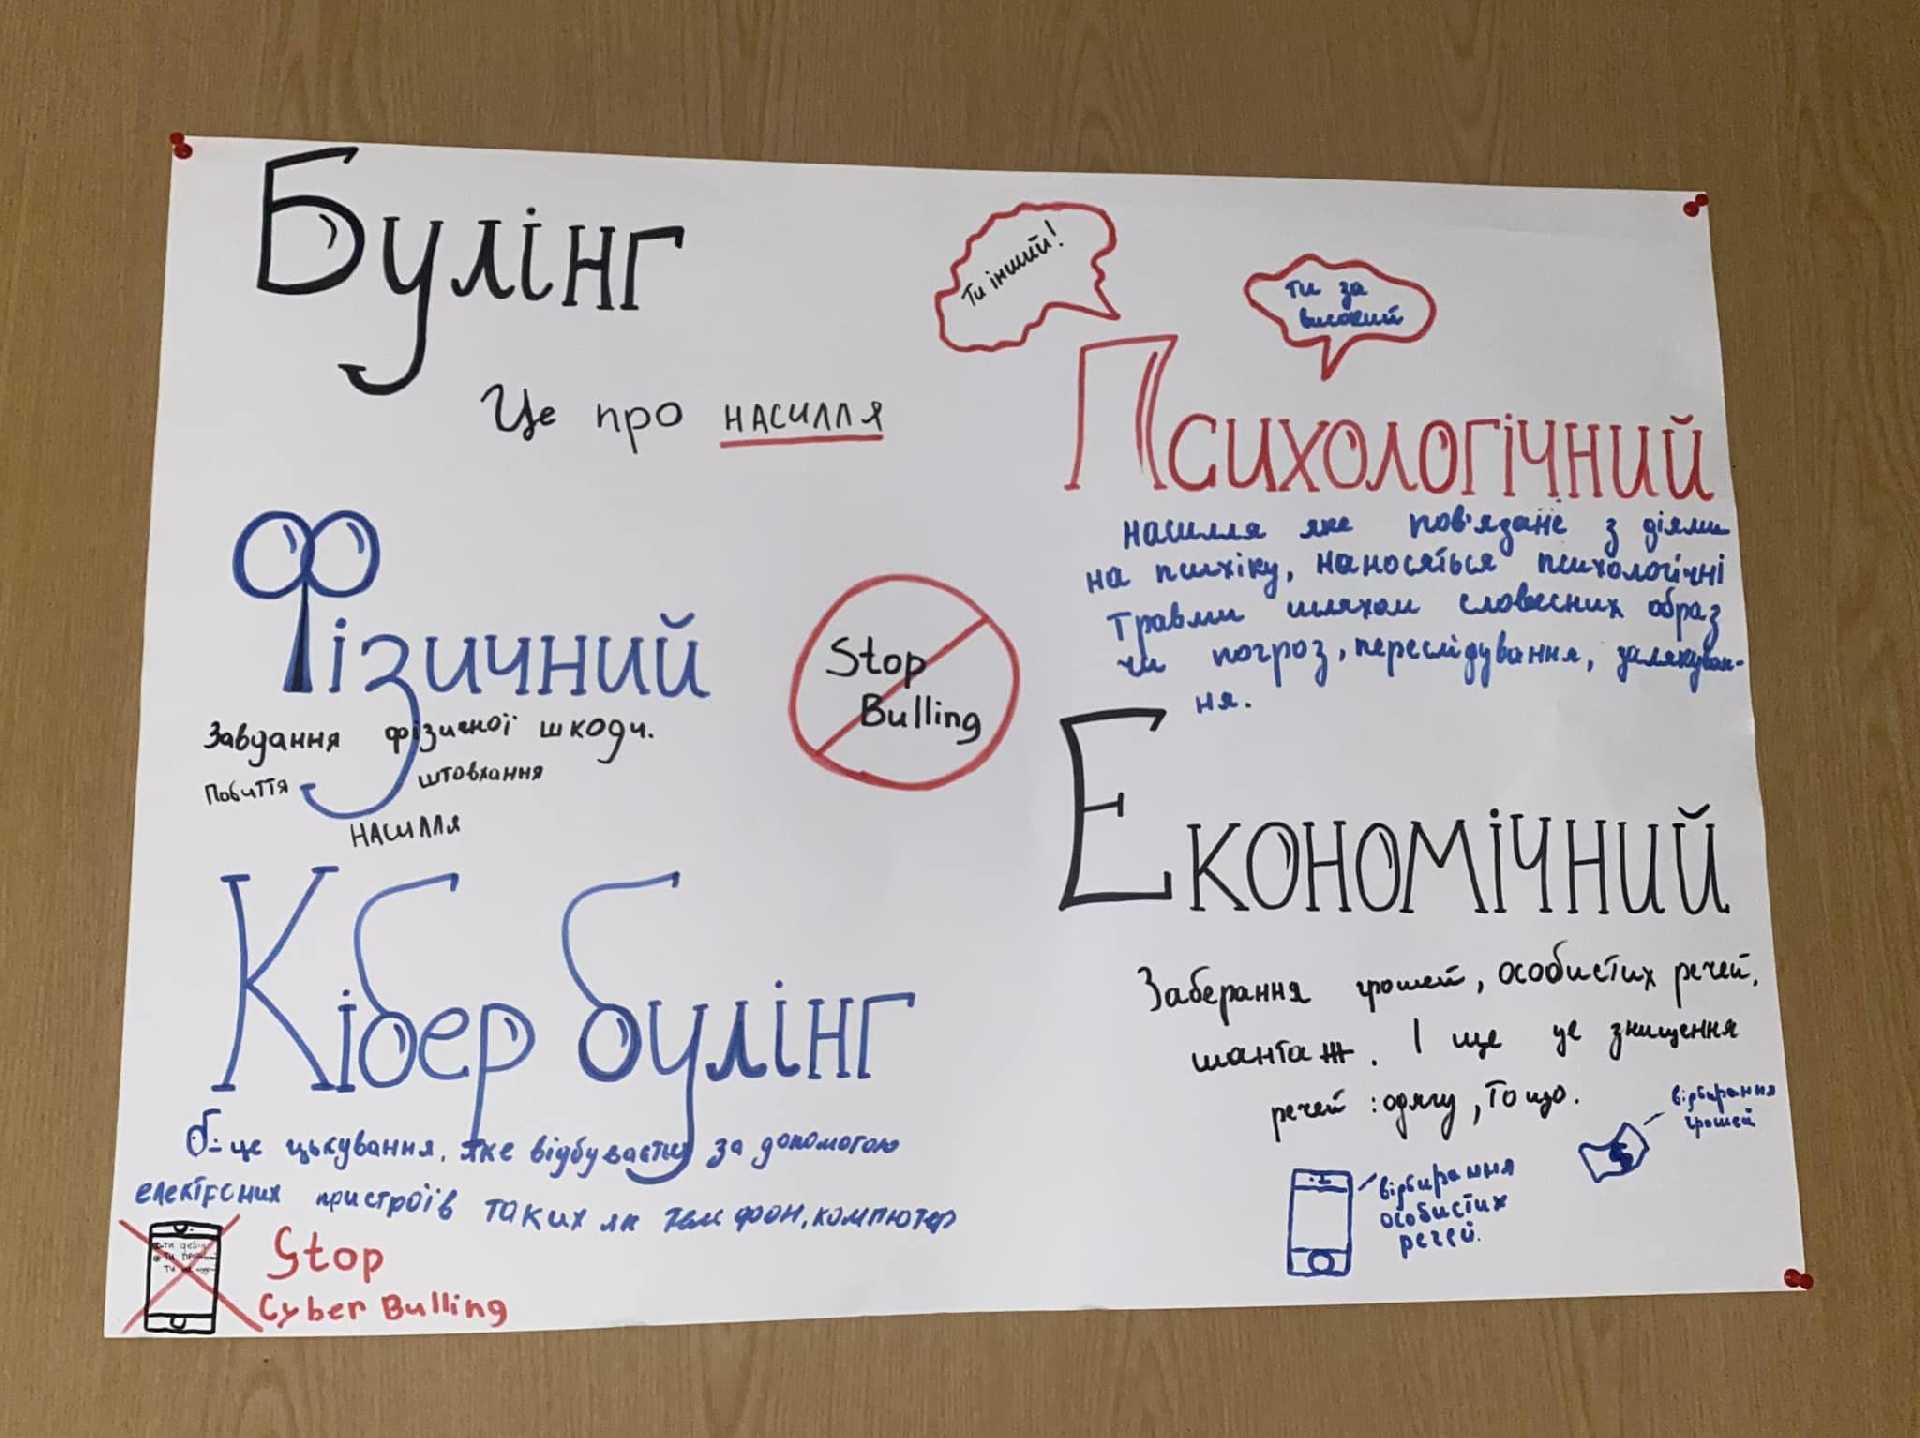 Булінг
Це про насилля
Ти інший!
ти за
високий
Психологічний
насилля яке пов'язане з діями
на психіку, наносяться психологічні
травми шляхом словесних образ
чи погроз, переслідування, залякуван-
ня.
Фізичний
Завдання фізичної шкоди.
Побиття штовхання
насилля
Stop
Bulling
Економічний
Заберання грошей, особистих речей,
шантаж. І ще це знищення
речей :одягу, тощо.
відбирання
грошей
відбирання
особистих
речей.
Кібер булінг
це цькування, яке відбувається за допомогою
електроних пристроїв таких як телефон, компютер
Stop
Cyber Bulling